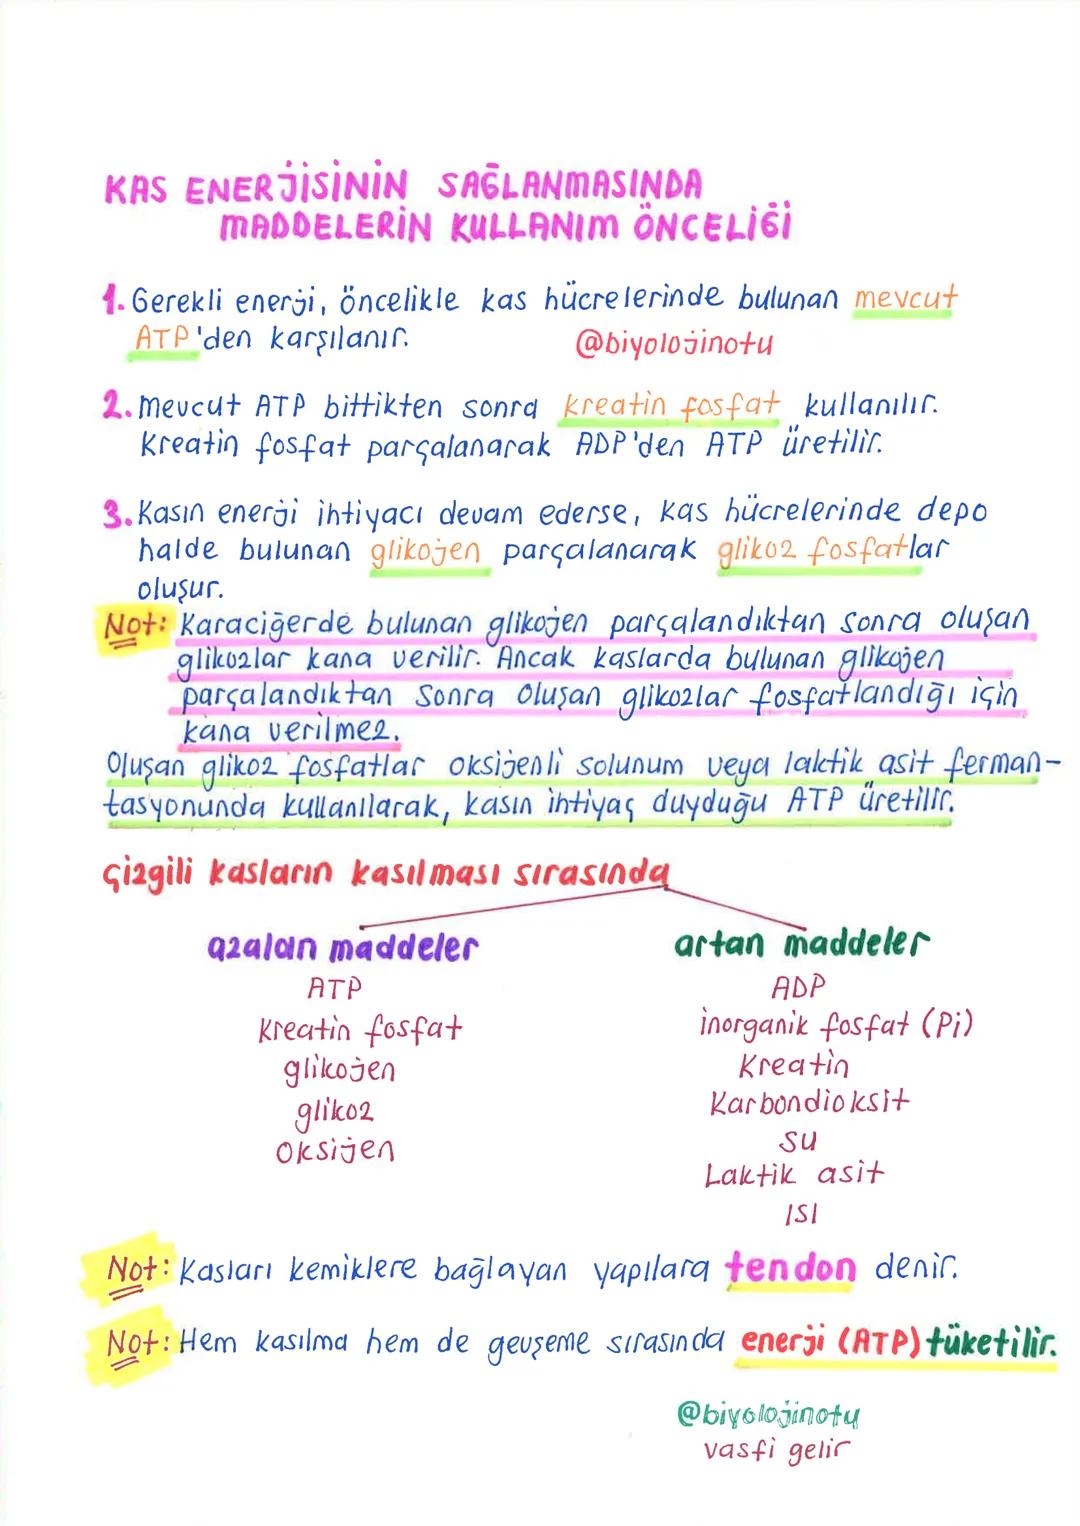 KAS ENERJİSİNİN SAĞLANMASINDA
MADDELERİN KULLANIM ÖNCELİĞİ
1. Gerekli enerji, öncelikle kas hücrelerinde bulunan mevcut
ATP'den karşılanır.
@biyolojinotu
2. Mevcut ATP bittikten sonra kreatin fosfat kullanılır.
Kreatin fosfat parçalanarak ADP'den ATP üretilir.
3. Kasın enerji ihtiyacı devam ederse, kas hücrelerinde depo
halde bulunan glikojen parçalanarak glikoz fosfatlar
oluşur.
Not: Karaciğerde bulunan glikojen parçalandıktan sonra oluşan
glikozlar kana verilir. Ancak kaslarda bulunan glikojen
parçalandıktan sonra oluşan glikozlar fosfatlandığı için
kana verilmez.
Oluşan glikoz fosfatlar oksijenli solunum veya laktik asit ferman-
tasyonunda kullanılarak, kasın ihtiyaç duyduğu ATP üretilir.
Çizgili kasların kasılması sırasında
azalan maddeler
ATP
Kreatin fosfat
glikojen
glikoz
Oksijen
artan maddeler
ADP
inorganik fosfat (Pi)
Kreatin
Karbondioksit
su
Laktik asit
ISI
Not: Kasları kemiklere bağlayan yapılara tendon denir.
Not: Hem kasılma hem de gevşeme sırasında enerji (ATP) tüketilir.
@biyolojinotu
vasfi gelir